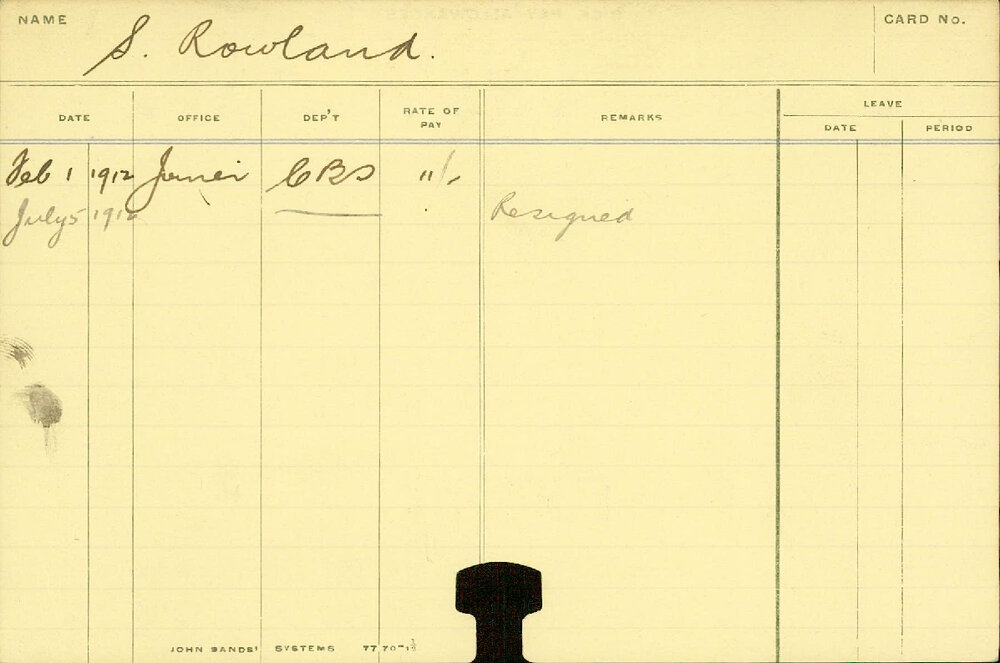 NAME S. Rowland. CARD No.
LEAVE
DATE OFFICE DEP'T RATE OF PAY REMARKS DATE PERIOD
Feb 1 1912 Joiner CBS 11/-
July 5 1912 Resigned
JOHN SANDS' SYSTEMS